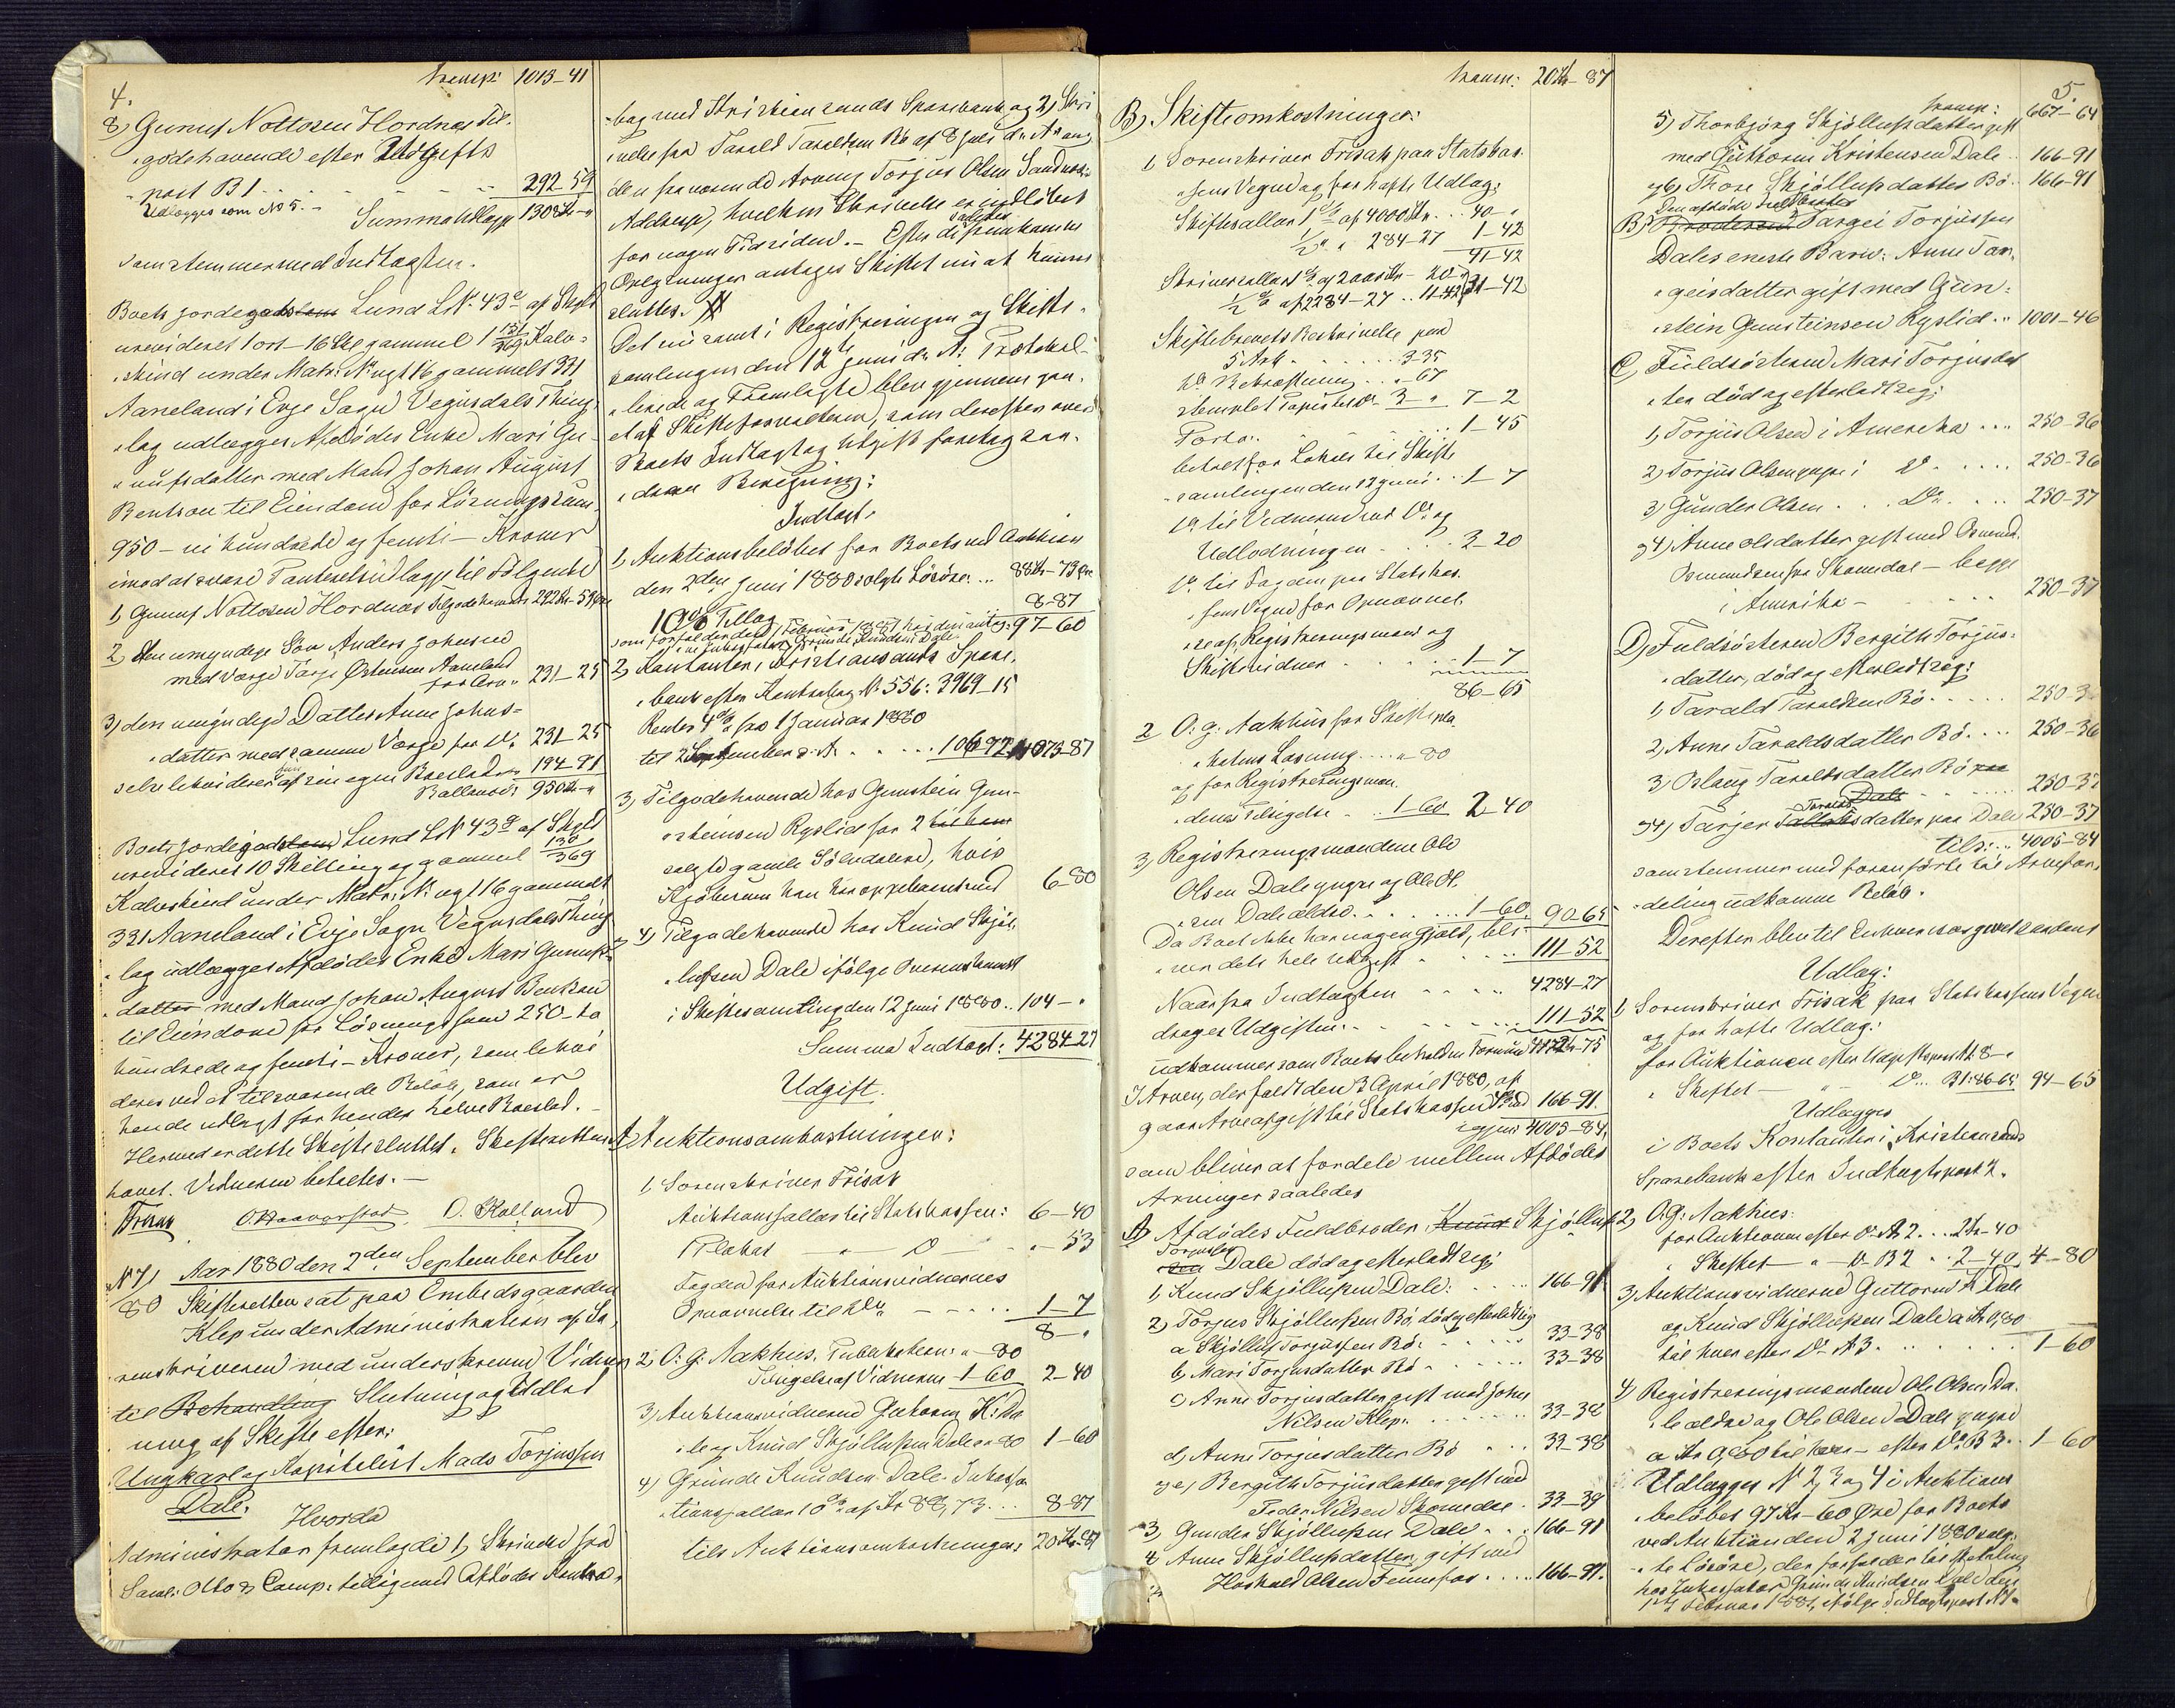 4.
Transp: 1013-41
8, Gunuf Nottosen Hordnes Til-
godehavende efter Udgifts
post B 1 . . . . . 292-59
Udlægges som No 5. - Summa Udlagt 1308 Kr - "
samstemmer med Indtægten.
Boets jordegods Lund L No. 43 a af Skyld
urevideret 1 ort - 16 Skg gammel 1 131/369 Kalv-
skind under Matr. No ugt 16 gammelt 331
Aaneland i Evje Sogn Vegusdals Thing-
lag udlægges Afdødes Enke Mari Gu-
nufsdatter med Mand Johan August
Bentson til Eiendom for Løsningssum
950 - ni hundrede og femti - Kroner
imod at svare Panteretsudlæg til Følgende
1, Gunuf Nottosen Hordnes Tilgodehavende 292 Kr - 59 Øre
2, den umyndige Søn Anders Johnsen
med Værge Tarje Østensen Aaneland
for Arv " 231-25
3, den umyndige Datter Anne Johns-
datter med samme Værge for Do. 231-25
selv likviderer af sin egen Boeslod 194-91
Ballance: 950 Kr - "
Boets jordegods Lund L No 43 a af Skyld
urevideret 10 Skilling og gammel 130/369
Kalveskind under Matr. No ugt 16 gammelt
331 Aaneland i Evje Sogn Vegusdals Thing-
lag udlægges Afdødes Enke Mari Gunufs-
datter med Mand Johan August Bentson
til Eiendom for Løsningssum 250 - to
hundrede og femti - Kroner, som likvi-
deres ved et tilsvarende Beløb, som er
hende udlagt for hendes halve Boeslod. -
Hermed er dette Skifte sluttet. Skifteretten
hævet. Vidnerne betaltes. -
Frisak O. Haavorstad O. Kalland
No 7/80 Aar 1880 den 2den September blev
Skifteretten sat paa Embedsgaarden
Klep under Administration af So-
renskriveren med underskrevne Vidner
til Behandling Slutning og Udlod
ning af Skifte efter:
Ungkarl og Kapitalist Mads Torjussen
Dale.
Hvorda
Administrator fremlagde 1, Skrivelse fra
Saml: Otto & Comp: tilligemed Afdødes Kontra-
-bog med Kristiansands Sparebank og 2, Skri
velse fra Tarald Taraldsen Bø af 8 Juli d. A. ang
den fraværende Arving Torjus Olsen Sandnes's
Adresse, hvilken Skrivelse er indløbet
for nogen Tid siden. - Efter de saaledes fremkomne
Oplysninger antages Skiftet nu at kunne
sluttes.
Det nu samt i Registreringen og Skifte-
samlingen den 12te Juni d. A: Protokol-
lerede og Fremlagte blev gjennemgaa-
et af Skifteforvalteren, som derefter over
Boets Indtægt og Udgift foretog saa-
dan Beregning:
Indtægt.
1, Auktionsbeløbet for Boets ved Auktion
den 2den Juni 1880 solgte Løsøre . . . 88 Kr - 73 Øre
10% Tillæg 8-87
som forfalder den 1 Februar 1881 hos den antag: 97-60
ne Inkassator Grunde Knudsen Dale.
2, Kontanter i Kristiansands Spare-
bank efter Kontrabog No. 556: 3969-15
Renter 4% fra 1 Januar 1880
til 2 September s. A. . . . . . 106-72 4073-87
3, Tilgodehavende hos Gunstein Gun-
steinsen Rysslid for 2 til ham
solgte gamle Sølvdalere, hvis
Kjøbesum han har oppebaaret med 6-80
4, Tilgodehavende hos Knud Skjøl-
lufsen Dale ifølge Overenskomst
i Skiftesamling den 12 Juni 1880 . . 104 - "
Summa Indtægt: 4284-27
Udgift.
A, Auktionsomkostninger:
1, Sorenskriver Frisak
Auktionssallær til Statskassen: 6-40
1 Plakat " Do " -53
Fogden for Auktionsvidnernes
Opnævnelse til Do . . . . 1-7
8 - "
2, O: G: Aakhus. Publikation: " 80
Tilsigelse af Vidnerne 1-60 2-40
3, Auktionsvidnerne Guttorm K: Da
le og Knud Skjøllufsen Dale a 80 1-60
4, Grunde Knudsen Dale Inkassa
tionssallær 10% af Kr 88,73 . . . 8-87
tils Auktionsomkostninger: 20 Kr - 87
Transp: 20 Kr - 87
B, Skifteomkostninger:
1, Sorenskriver Frisak paa Statskas-
sens Vegne og for hafte Udlæg:
Skiftesallær 1% af 4000 Kr . . . 40 - "
1/2 " " 284-27 1-42
41-42
Skriversallær 1% af 2000 Kr - 20 - "
1/2 % af 2284-27 . . 11-42 31-42
Skiftebrevets Beskrivelse paa
5 Ark . . . . . . 3-35
Do Bekræftning . . . " 67
stemplet Papir til Do 3 " 7-2
Porto . . . . . . . . 1-45
betalt for Lokale til Skifte
samlingen den 12 Juni . . . 1-7
Do til Vidnerne ved Do og
Udlodningen . . . . . 3-20
Do til Fogden paa Statskas-
sens Vegne for Opnævnel-
se af Registreringsmænd og
Skiftevidner . . . . . . 1-7
86-65
2 O: G: Aakhus for Skiftepla
katens Læsning . . . " - 80
og for Registreringsmæn
denes Tilsigelse . . 1-60 2-40
3, Registreringsmændene Ole
Olsen Dale yngre og Ole Ol-
sen Dale ældre . . . . . . 1-60 90-65
Da Boet ikke har nogen Gjæld, bli-
ver dets hele Udgift . . . . . 111-52
Naar fra Indtægten . . . . . 4284-27
drages Udgiften . . . . . . 111-52
udkommer som Boets beholdne Formue 4172 Kr - 75
I Arven, der faldt den 3 April 1880, af
gaar Arveafgift til Statskassen 4% med 166-91
igjen 4005-84,
som bliver at fordele mellem Afdødes
Arvinger saaledes
A, Afdødes Fuldbroder Knud Skjølluf
Torjussen Dale død og efterladt sig:
1, Knud Skjøllufsen Dale: . . . . 166-91
2, Torjus Skjøllufsen Bø, død og efterladt sig
a Skjølluf Torjussen Bø: . . . . 33-38
b, Mari Torjusdatter Bø . . . . 33-38
c, Anne Torjusdatter gift med Johns
Nilsen Klep. . . . . . . . 33-38
d, Anne Torjusdatter Bø . . . 33-38
og e, Bergith Torjusdatter gift med
Peder Nilsen Skomedal . 33-39
3, Gunder Skjøllufsen Dale . . . 166-91
4 Anne Skjøllufsdatter gift med
Haavald Olsen Fennefos . . . . 166-91.
5.
Transp: 667-64
5, Thorbjørg Skjøllufsdatter gift
med Guttorm Kristensen Dale . . 166-91
og 6, Thore Skjøllufsdatter Bø . 166-91
B, Den afdøde Fuldbroder Broderens Targei Torjussen
Dales eneste Barn: Anne Tar-
geisdatter gift med Gun-
stein Gunsteinsen Rysslid . . 1001-46
C, Fuldsøsteren Mari Torjusdat
ter død og efterladt sig:
1, Torjus Olsen i Amerika . . . 250-36
2, Torjus Olsen yngre i Do . . . . 250-36
3, Gunder Olsen . . . Do . . . 250-37
og 4, Anne Olsdatter gift med Osmund
Osmundsen fra Skomedal - begge
i Amerika - . . . . 250-37
D, Fuldsøsteren Bergith Torjus-
datter, død og efterladt sig:
1, Tarald Taraldsen Bø . . . . . 250-3
2, Anne Taraldsdatter Bø . . . . 250-36
3, Oslaug Taraldsdatter Bø paa
Dale . . . . . . 250-37
og 4, Tarjer Taralds datter paa Dale 250-37
tils: . . 4005-84
samstemmer med foranførte til Arvefor-
deling udkomne Beløb.
Derefter blev til Enhver især gjort saadant
Udlæg:
1, Sorenskriver Frisak paa Statskassens Vegne
og for hafte Udlæg:
for Auktionen efter Udgiftspost A 1. 8 - "
" Skiftet - " - Do . . B 1: 86-65 94-65
Udlægges
i Boets Kontanter i Kristiansands
Sparebank efter Indtægtspost 2.
2, O: G: Aakhus:
for Auktionen efter Do A 2 . . . 2 Kr - 40
" Skiftet - " - Do B 2 . . 2-40 4-80
3, Auktionsvidnerne Guttorm K Dale
og Knud Skjøllufsen Dale a Kr 0,80
til hver efter Do A 3. . . . . . . 1-60
4, Registreringsmændene Ole Olsen Da-
le ældre og Ole Olsen Dale yngre
a Kr 0,80 til hver - efter Do B 3 . . 1-60
Udlægges No 2, 3 og 4 i Auktions
beløbet 97 Kr - 60 Øre for Boets
ved Auktion den 2 Juni 1880 solg-
te Løsøre, der forfalder til Betaling
hos Inkassator Grunde Knudsen Dale den
1ste Februar 1881, ifølge Indtægtspost No 1